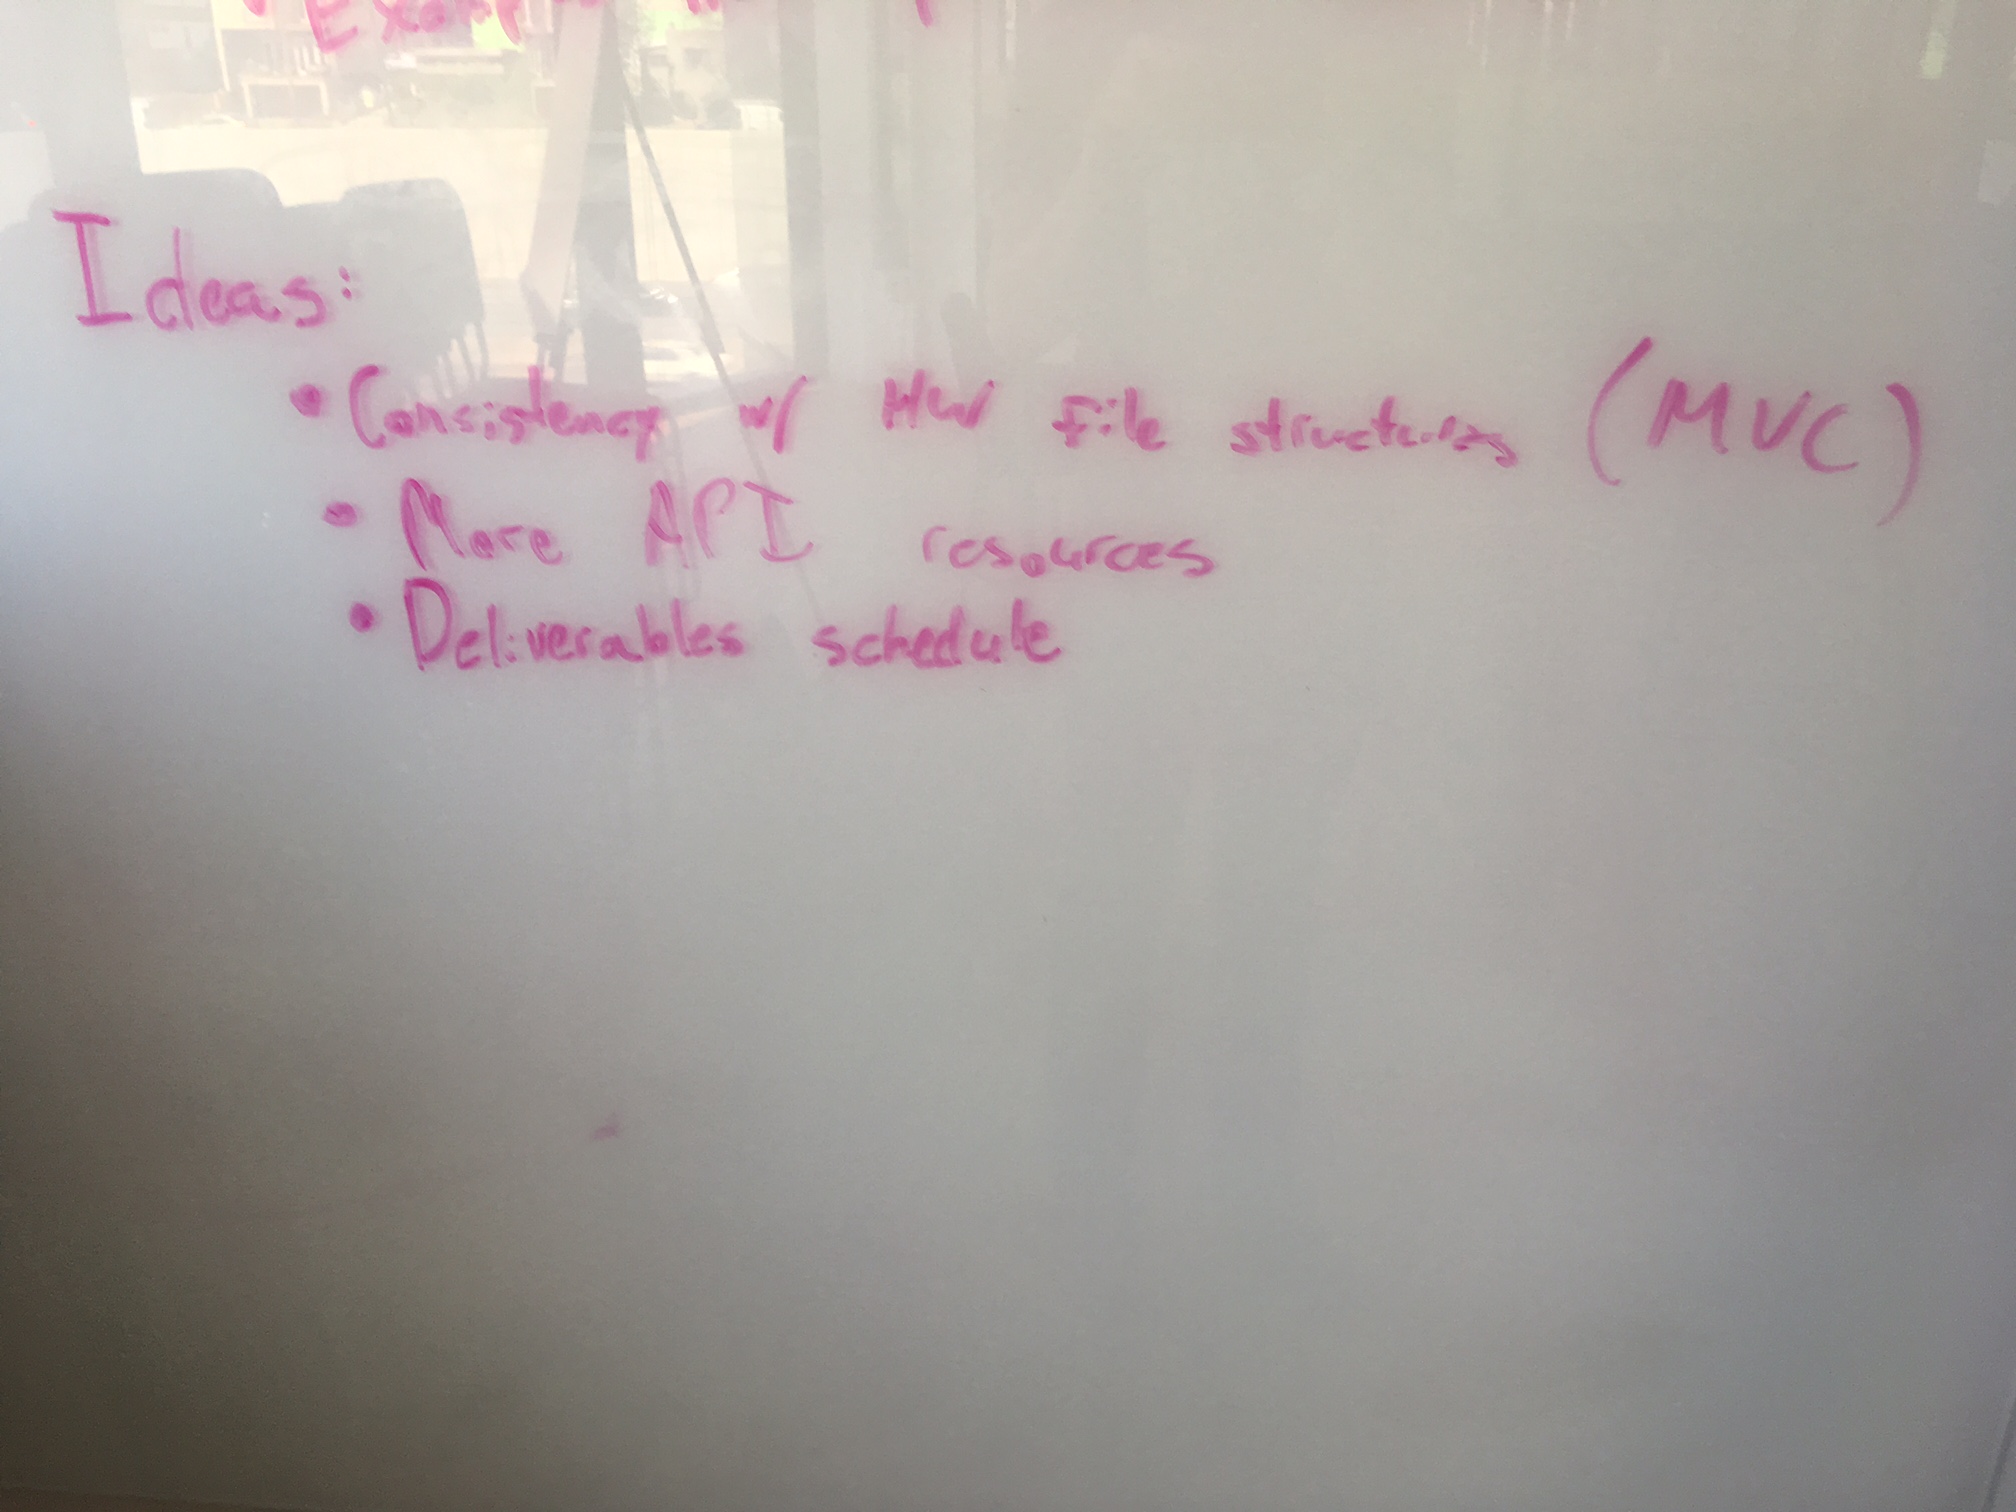 Ideas:
• Consistency w/ HW file structures (MVC)
• More API resources
• Deliverables schedule